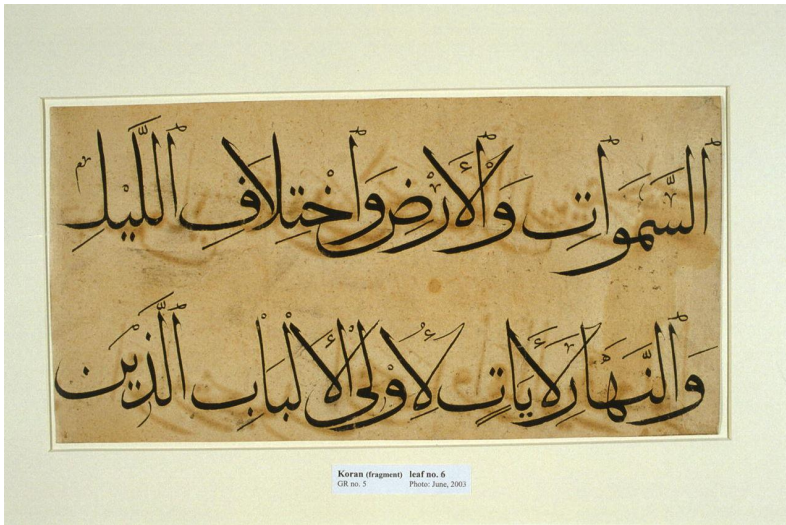 ٱلسَّمَوَاتِ وَٱلْأَرْضِ وَٱخْتِلَافِ ٱللَّيْلِ
وَٱلنَّهَارِ لَآيَاتٍ لِأُولِي ٱلْأَلْبَابِ ٱلَّذِيْنَ
Koran (fragment) leaf no. 6
GR no. 5 Photo: June, 2003